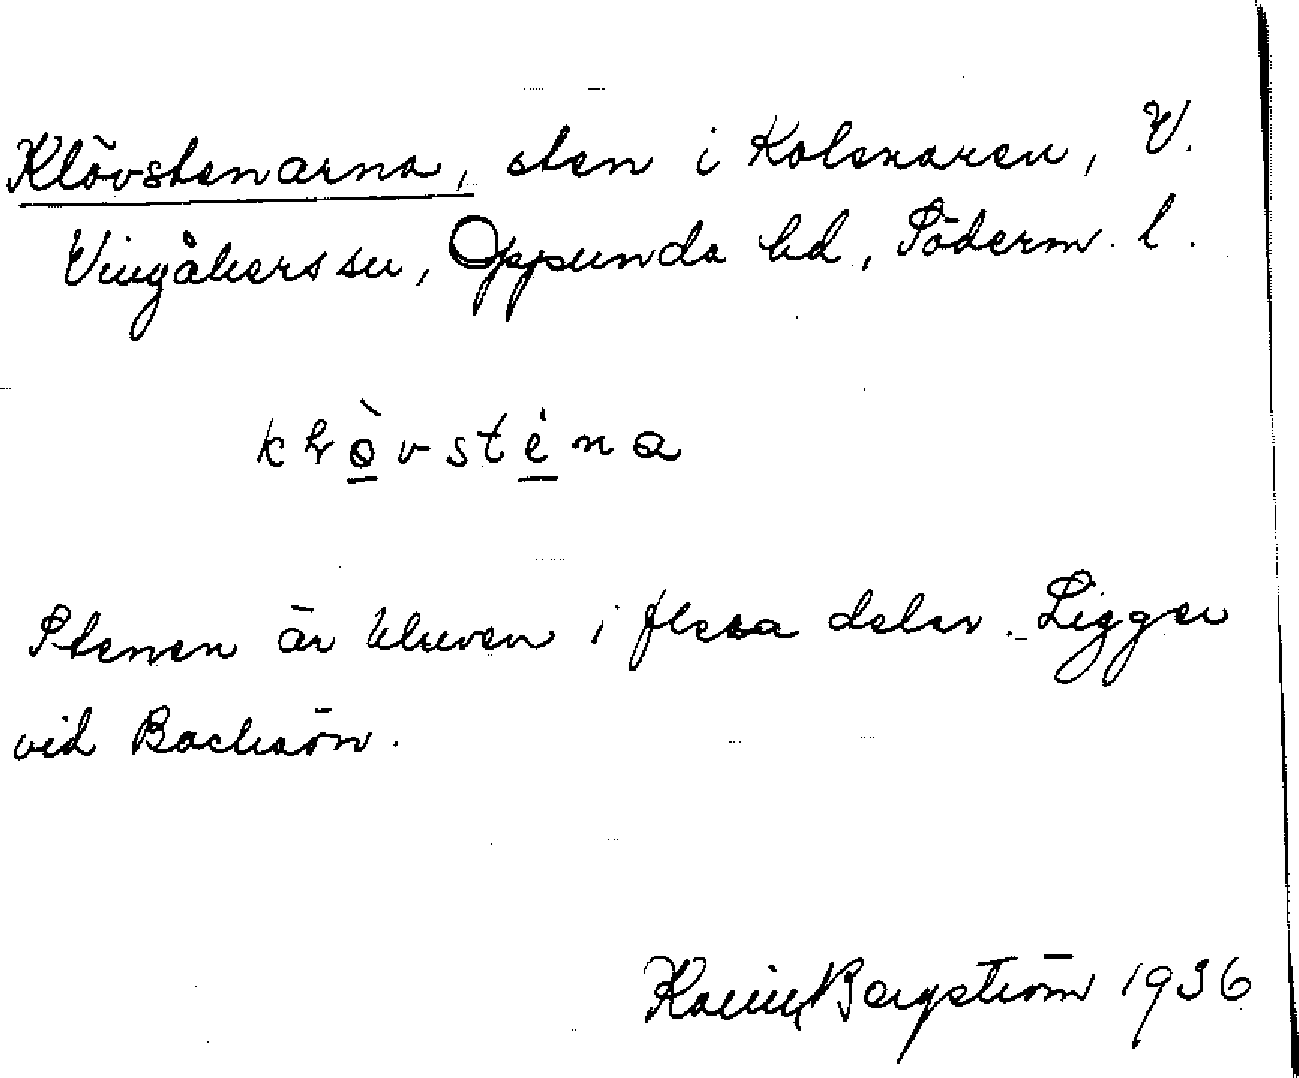 Klövstenarna, sten i Kolsnaren, V.
Vingåkers sn, Oppunda hd, Söderm. l.
stèna
Stenen är kluven i flera delar. Ligger
vid Backaön.
Bergström 1936